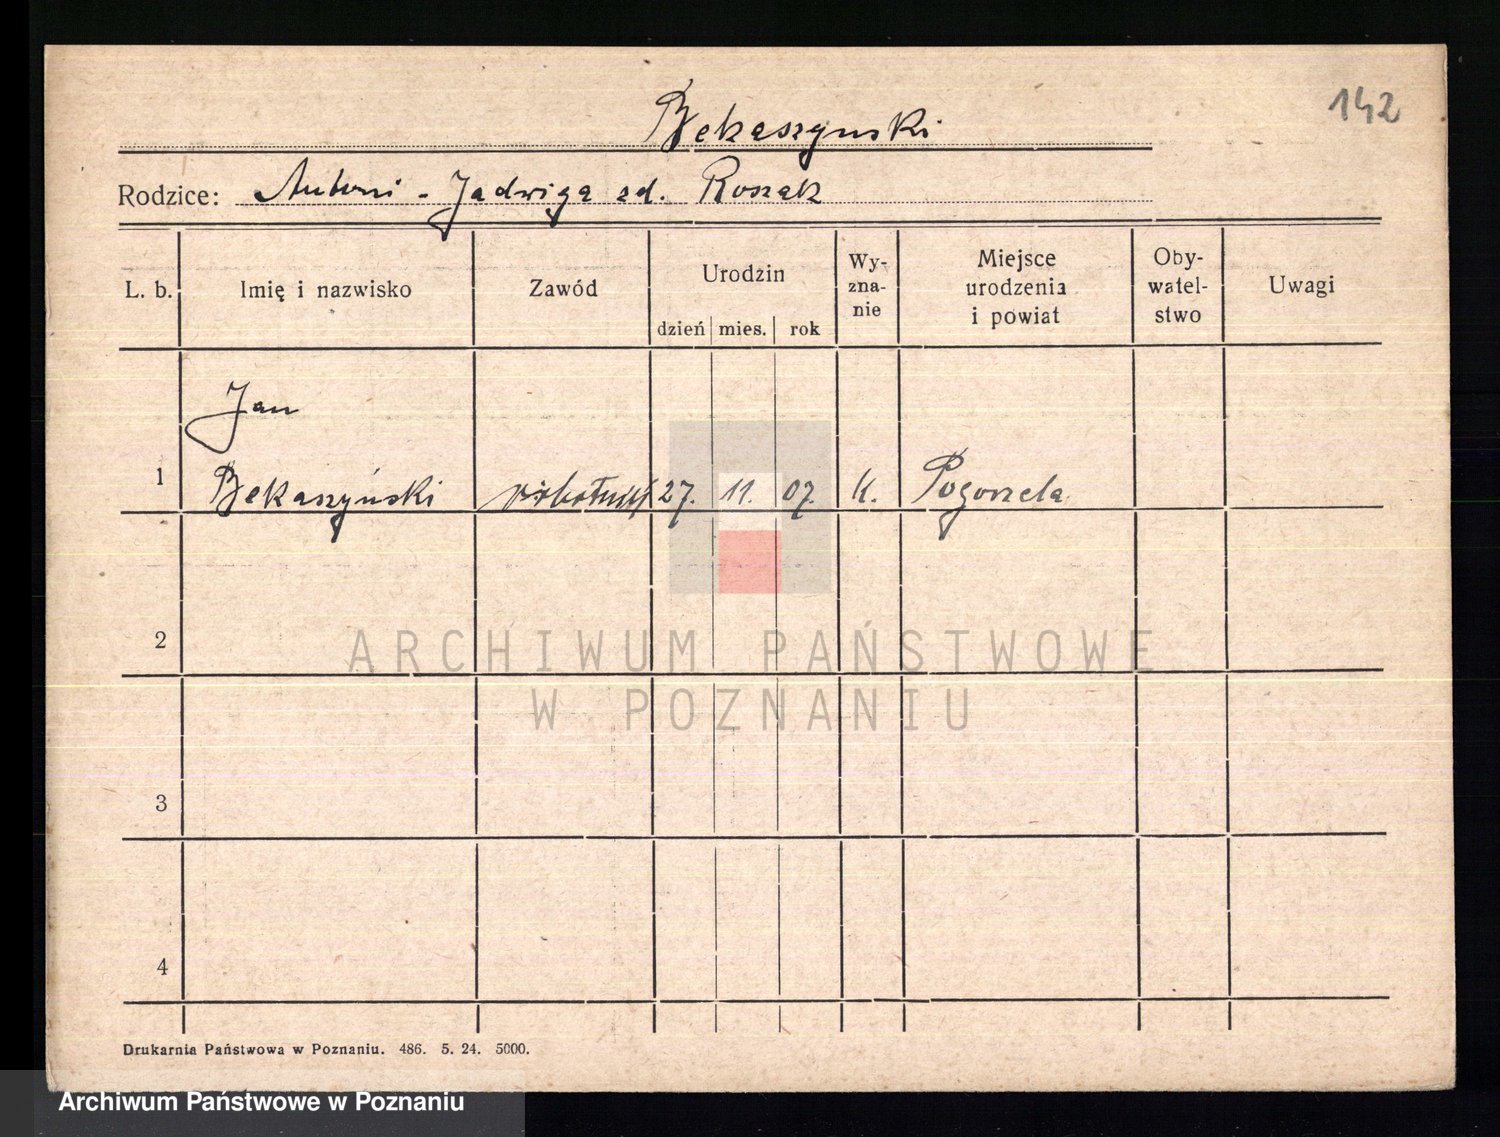 142
Bekaszynski
Rodzice: Antoni - Jadwiga zd. Roszak
L. b. Imię i nazwisko Zawód Urodzin dzień mies. rok Wy-zna-nie Miejsce urodzenia i powiat Oby-watel-stwo Uwagi
Jan
1 Bekaszyński robotnik 27. 11. 07. k. Pogorzela
2
ARCHIWUM PAŃSTWOWE
W POZNANIU
3
4
Drukarnia Państwowa w Poznaniu. 486. 5. 24. 5000.
Archiwum Państwowe w Poznaniu